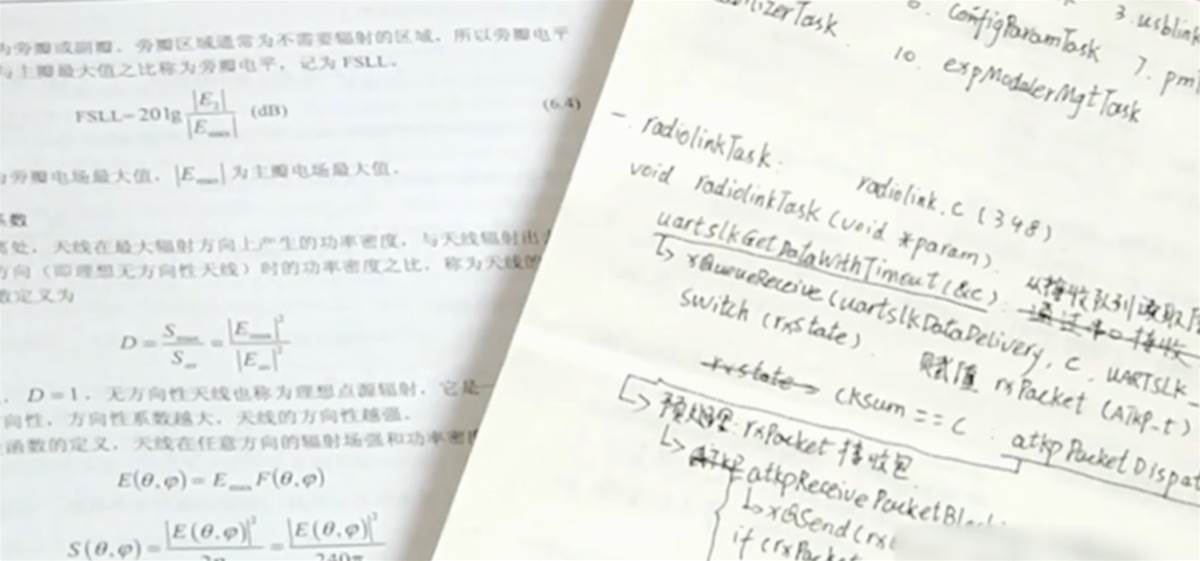 为旁瓣或副瓣。旁瓣区域通常为不需要辐射的区域，所以旁瓣电平
与主瓣最大值之比称为旁瓣电平，记为 FSLL。
FSLL=20lg |E₂|/|Eₘₐₓ| (dB) (6.4)
为旁瓣电场最大值，|Eₘₐₓ|为主瓣电场最大值。
系数
离处，天线在最大辐射方向上产生的功率密度，与天线辐射出
方向（即理想无方向性天线）时的功率密度之比，称为天线的
数定义为
D=
D=1，无方向性天线也称为理想点源辐射，它是一
向性，方向性系数越大，天线的方向性越强。
函数的定义，天线在任意方向的辐射场强和功率密度
E(θ,φ)=EₘₐₓF(θ,φ)
S(θ,φ)=|E(θ,φ)|²/ = |E(θ,φ)|²/240π
ilizerTask 6. ConfigParamTask 7. pm
3. usblink
10. expModalerMgtTask
一. radiolinkTask: radiolink.c (348)
void radiolinkTask (void *param).
uartslkGetDataWithTimout(&c): 从接收队列读取
通过串口接收
↳ xQueueReceive(uartslkDataDelivery, c, UARTSLK_
switch (rxState). 赋值 rxPacket (ATKP_t)
rxstate → cksum == c : atkpPacketDispat
↳ 预处理: rxPacket 接收包
↳ ATKP atkpReceivePacketBl
↳ xQSend(rx
if (rxPacket